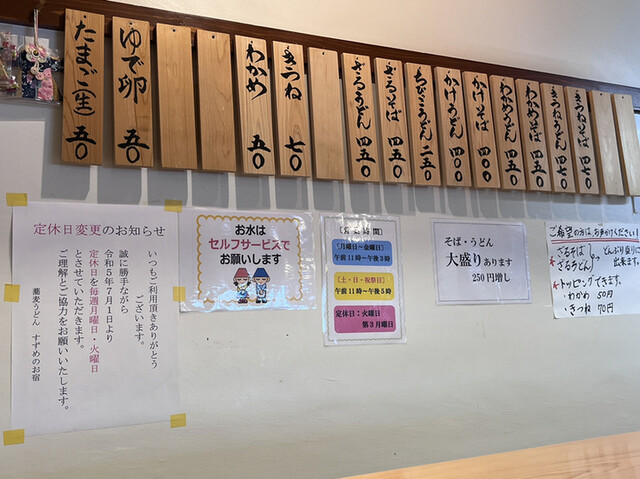 きつねそば 四七〇
きつねうどん 四七〇
わかめそば 四五〇
わかめうどん 四五〇
かけそば 四〇〇
かけうどん 四〇〇
ちびこうどん 二五〇
ざるそば 四五〇
ざるうどん 四五〇
きつね 七〇
わかめ 五〇
ゆで卵 五〇
たまご(生) 五〇
定休日変更のお知らせ
いつもご利用頂きありがとう
ございます。
誠に勝手ながら
令和5年7月1日より
定休日を毎週月曜日・火曜日
とさせていただきます。
ご理解とご協力をお願いいたします。
蕎麦うどん すずめのお宿
お水は
セルフサービスで
お願いします
[営業時間]
[月曜日～金曜日]
午前11時～午後3時
[土・日・祝祭日]
午前11時～午後5時
定休日:火曜日
第3月曜日
そば・うどん
大盛り あります
250円増し
ご希望の方は、お声かけください!
ざるそば
ざるうどん
どんぶり盛りに
出来ます。
トッピングできます。
・わかめ 50円
・きつね 70円